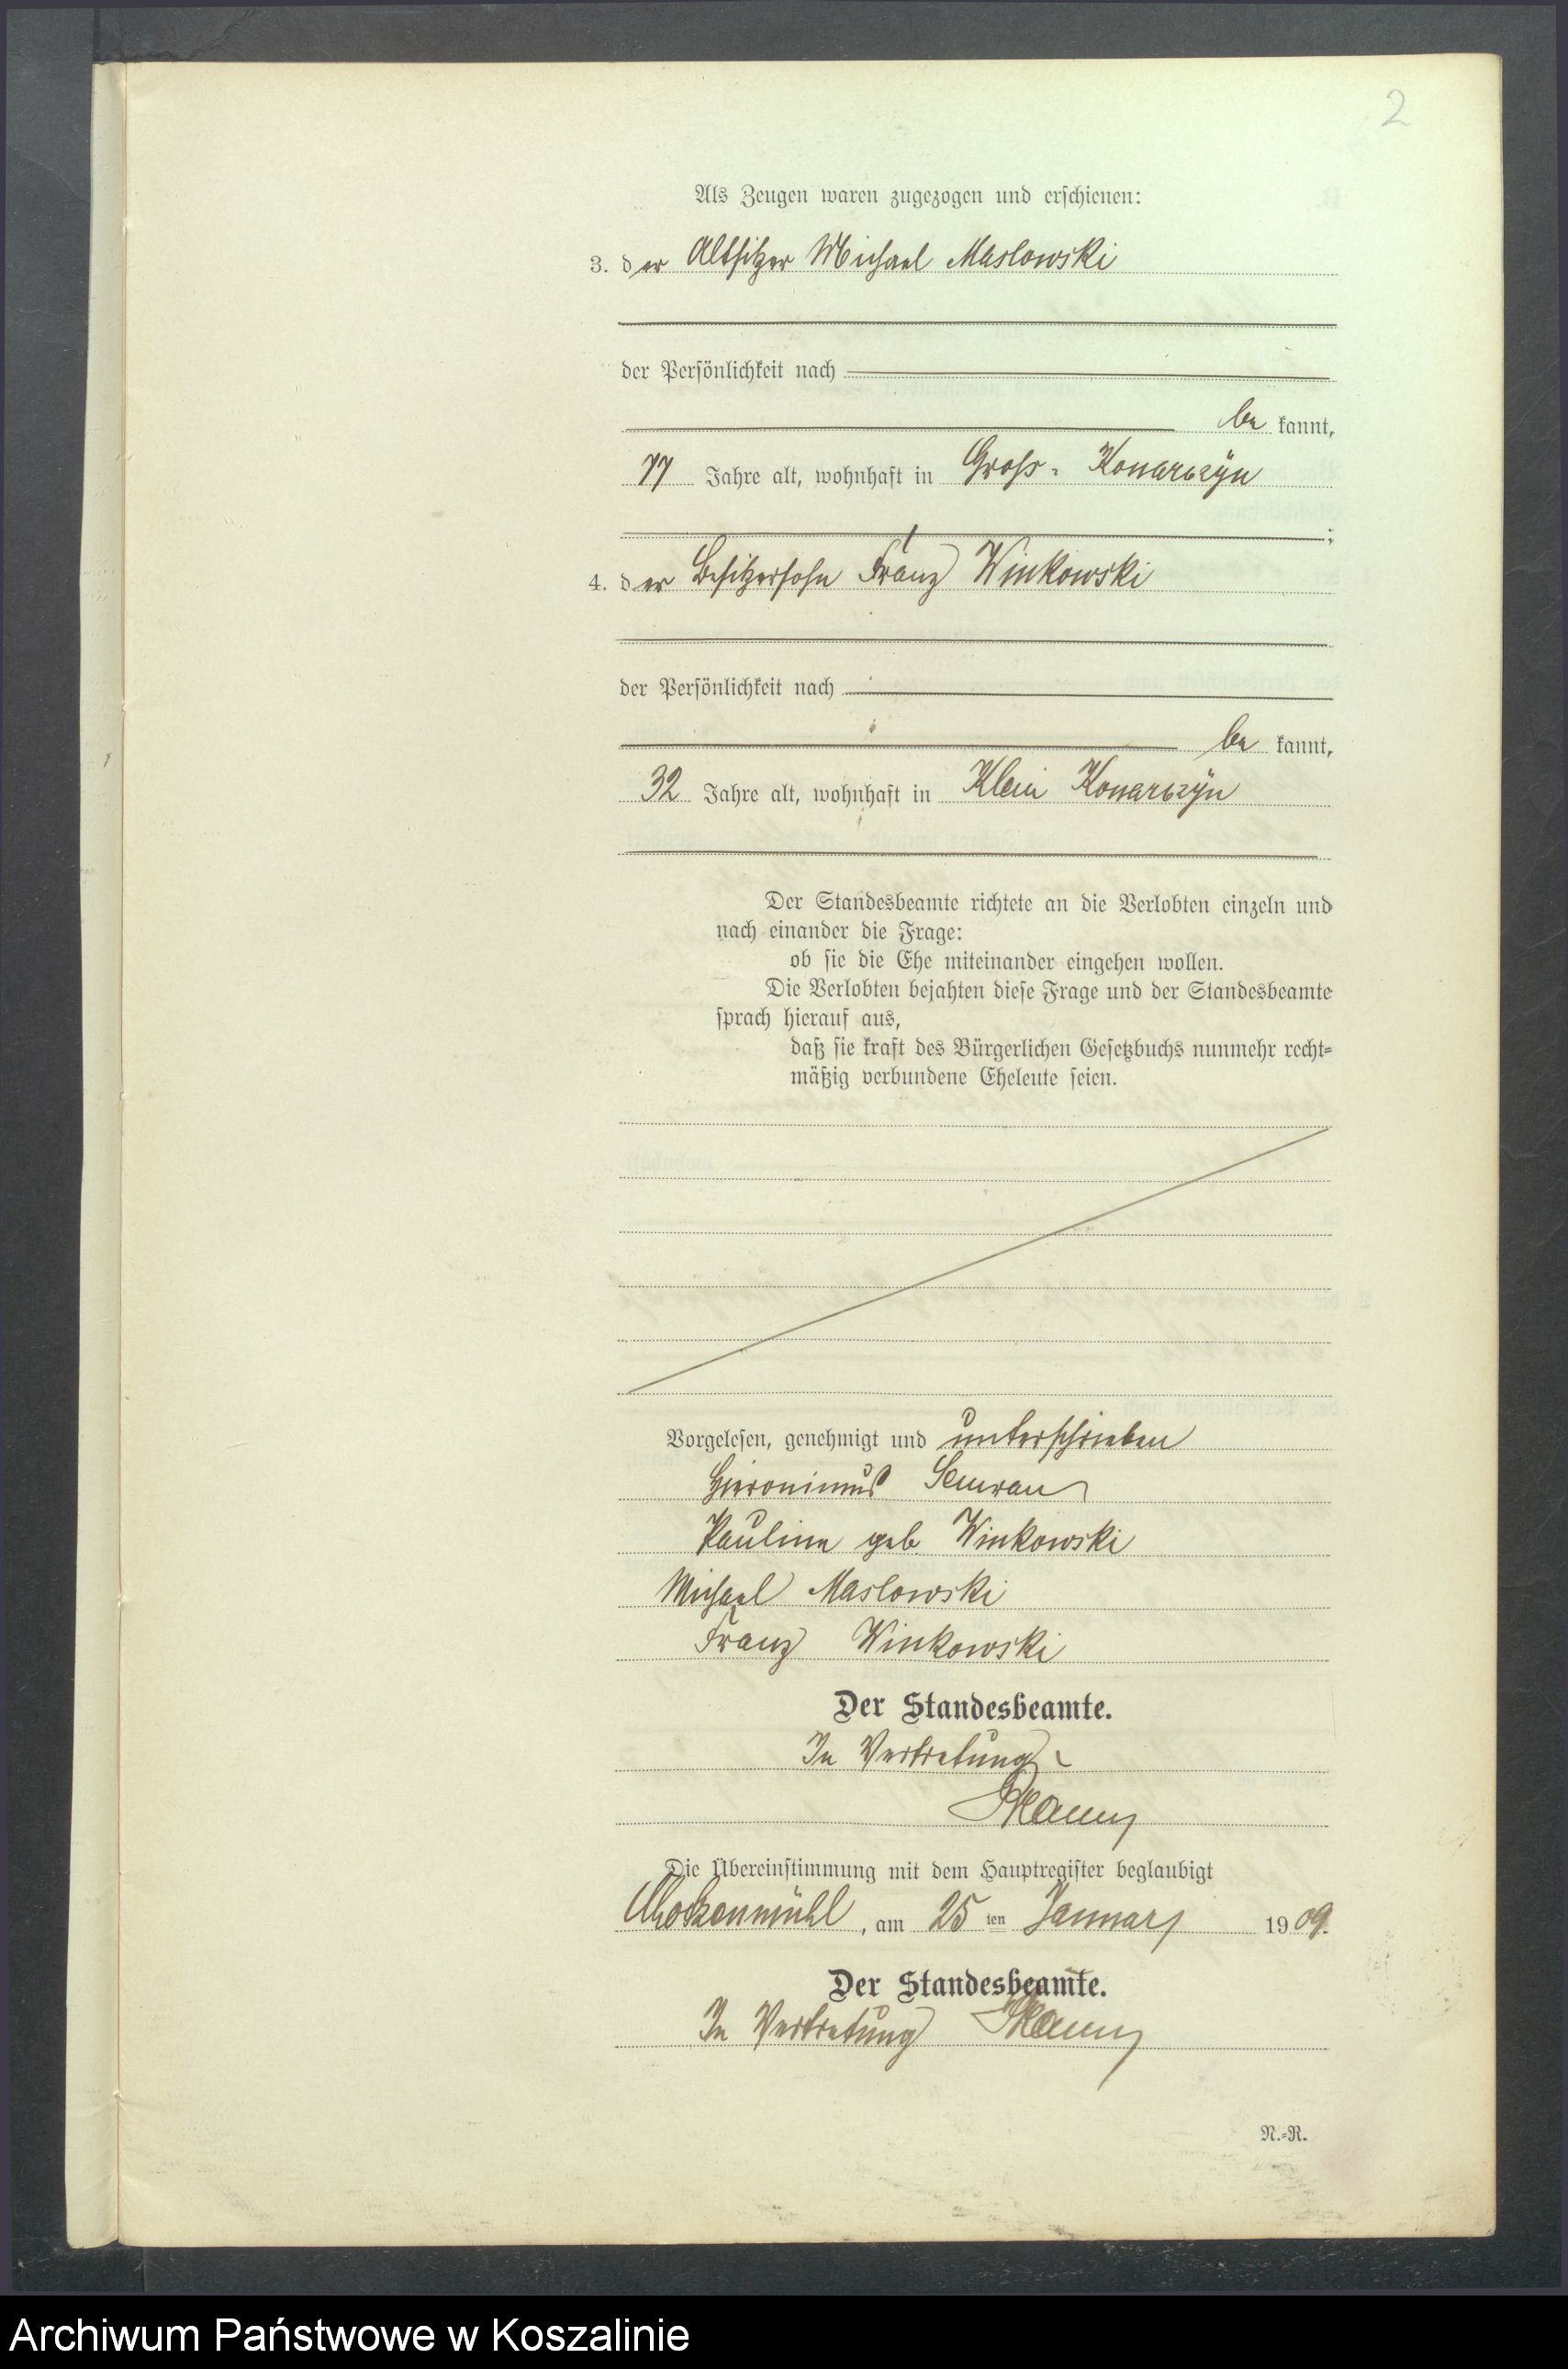 2
Als Zeugen waren zugezogen und erschienen:
3. der Altsitzer Michael Maslowski
der Persönlichkeit nach
be kannt,
77 Jahre alt, wohnhaft in Groß-Konarczyn
;
4. der Besitzersohn Franz Winkowski
der Persönlichkeit nach
be kannt,
32 Jahre alt, wohnhaft in Klein Konarczyn
Der Standesbeamte richtete an die Verlobten einzeln und
nach einander die Frage:
ob sie die Ehe miteinander eingehen wollen.
Die Verlobten bejahten diese Frage und der Standesbeamte
sprach hierauf aus,
daß sie kraft des Bürgerlichen Gesetzbuchs nunmehr recht-
mäßig verbundene Eheleute seien.
Vorgelesen, genehmigt und unterschrieben
Hieronimus Semrau
Pauline geb. Winkowski
Michael Maslowski
Franz Winkowski
Der Standesbeamte.
In Vertretung
Die Übereinstimmung mit dem Hauptregister beglaubigt
Chotzenmühl, am 25 ten Januar 1909.
Der Standesbeamte.
In Vertretung
N.-R.
Archiwum Państwowe w Koszalinie